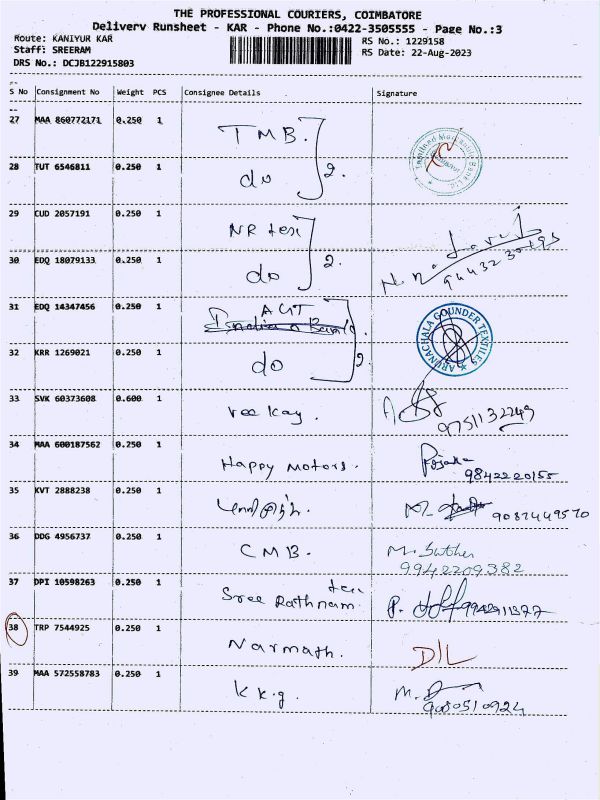 THE PROFESSIONAL COURIERS, COIMBATORE
Delivery Runsheet - KAR - Phone No.:0422-3505555 - Page No.:3
Route: KANIYUR KAR
RS No.: 1229158
Staff: SREERAM
RS Date: 22-Aug-2023
DRS No.: DCJB122915803
S No Consignment No Weight PCS Consignee Details Signature
27 MAA 860772171 0.250 1 TMB.
28 TUT 6546811 0.250 1 do 2.
Tamilnad Mercantile Bank Ltd.
29 CUD 2057191 0.250 1 NR tex
30 EDQ 18079133 0.250 1 do 2.
9443230195
31 EDQ 14347456 0.250 1 AGT
32 KRR 1269021 0.250 1 do 2.
ARUNACHALA GOUNDER TEXTILES
33 SVK 60373608 0.600 1 vee kay. 9751132249
34 MAA 600187562 0.250 1 Happy Motors. 9842220155
35 KVT 2888238 0.250 1
36 DDG 4956737 0.250 1 CMB. 9942209382
37 DPI 10598263 0.250 1 Sree Rathnam tex
38 TRP 7544925 0.250 1 Narmath. D/L
39 MAA 572558783 0.250 1 K K.g.